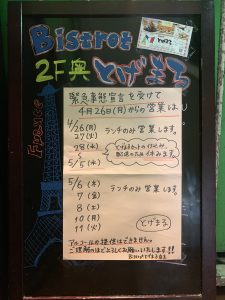 Bistrot
2F奥 とげまる
France
緊急事態宣言を受けて
4月26日(月)からの営業は、
4/26(月) ランチのみ営業します。
27(火)
28(水)
5/5(水)
5/6(木) ランチのみ営業します。
7(金)
8(土)
10(月)
11(火)
とげまる
アルコールの提供はできません。
ご理解のほどよろしくお願いいたします!!